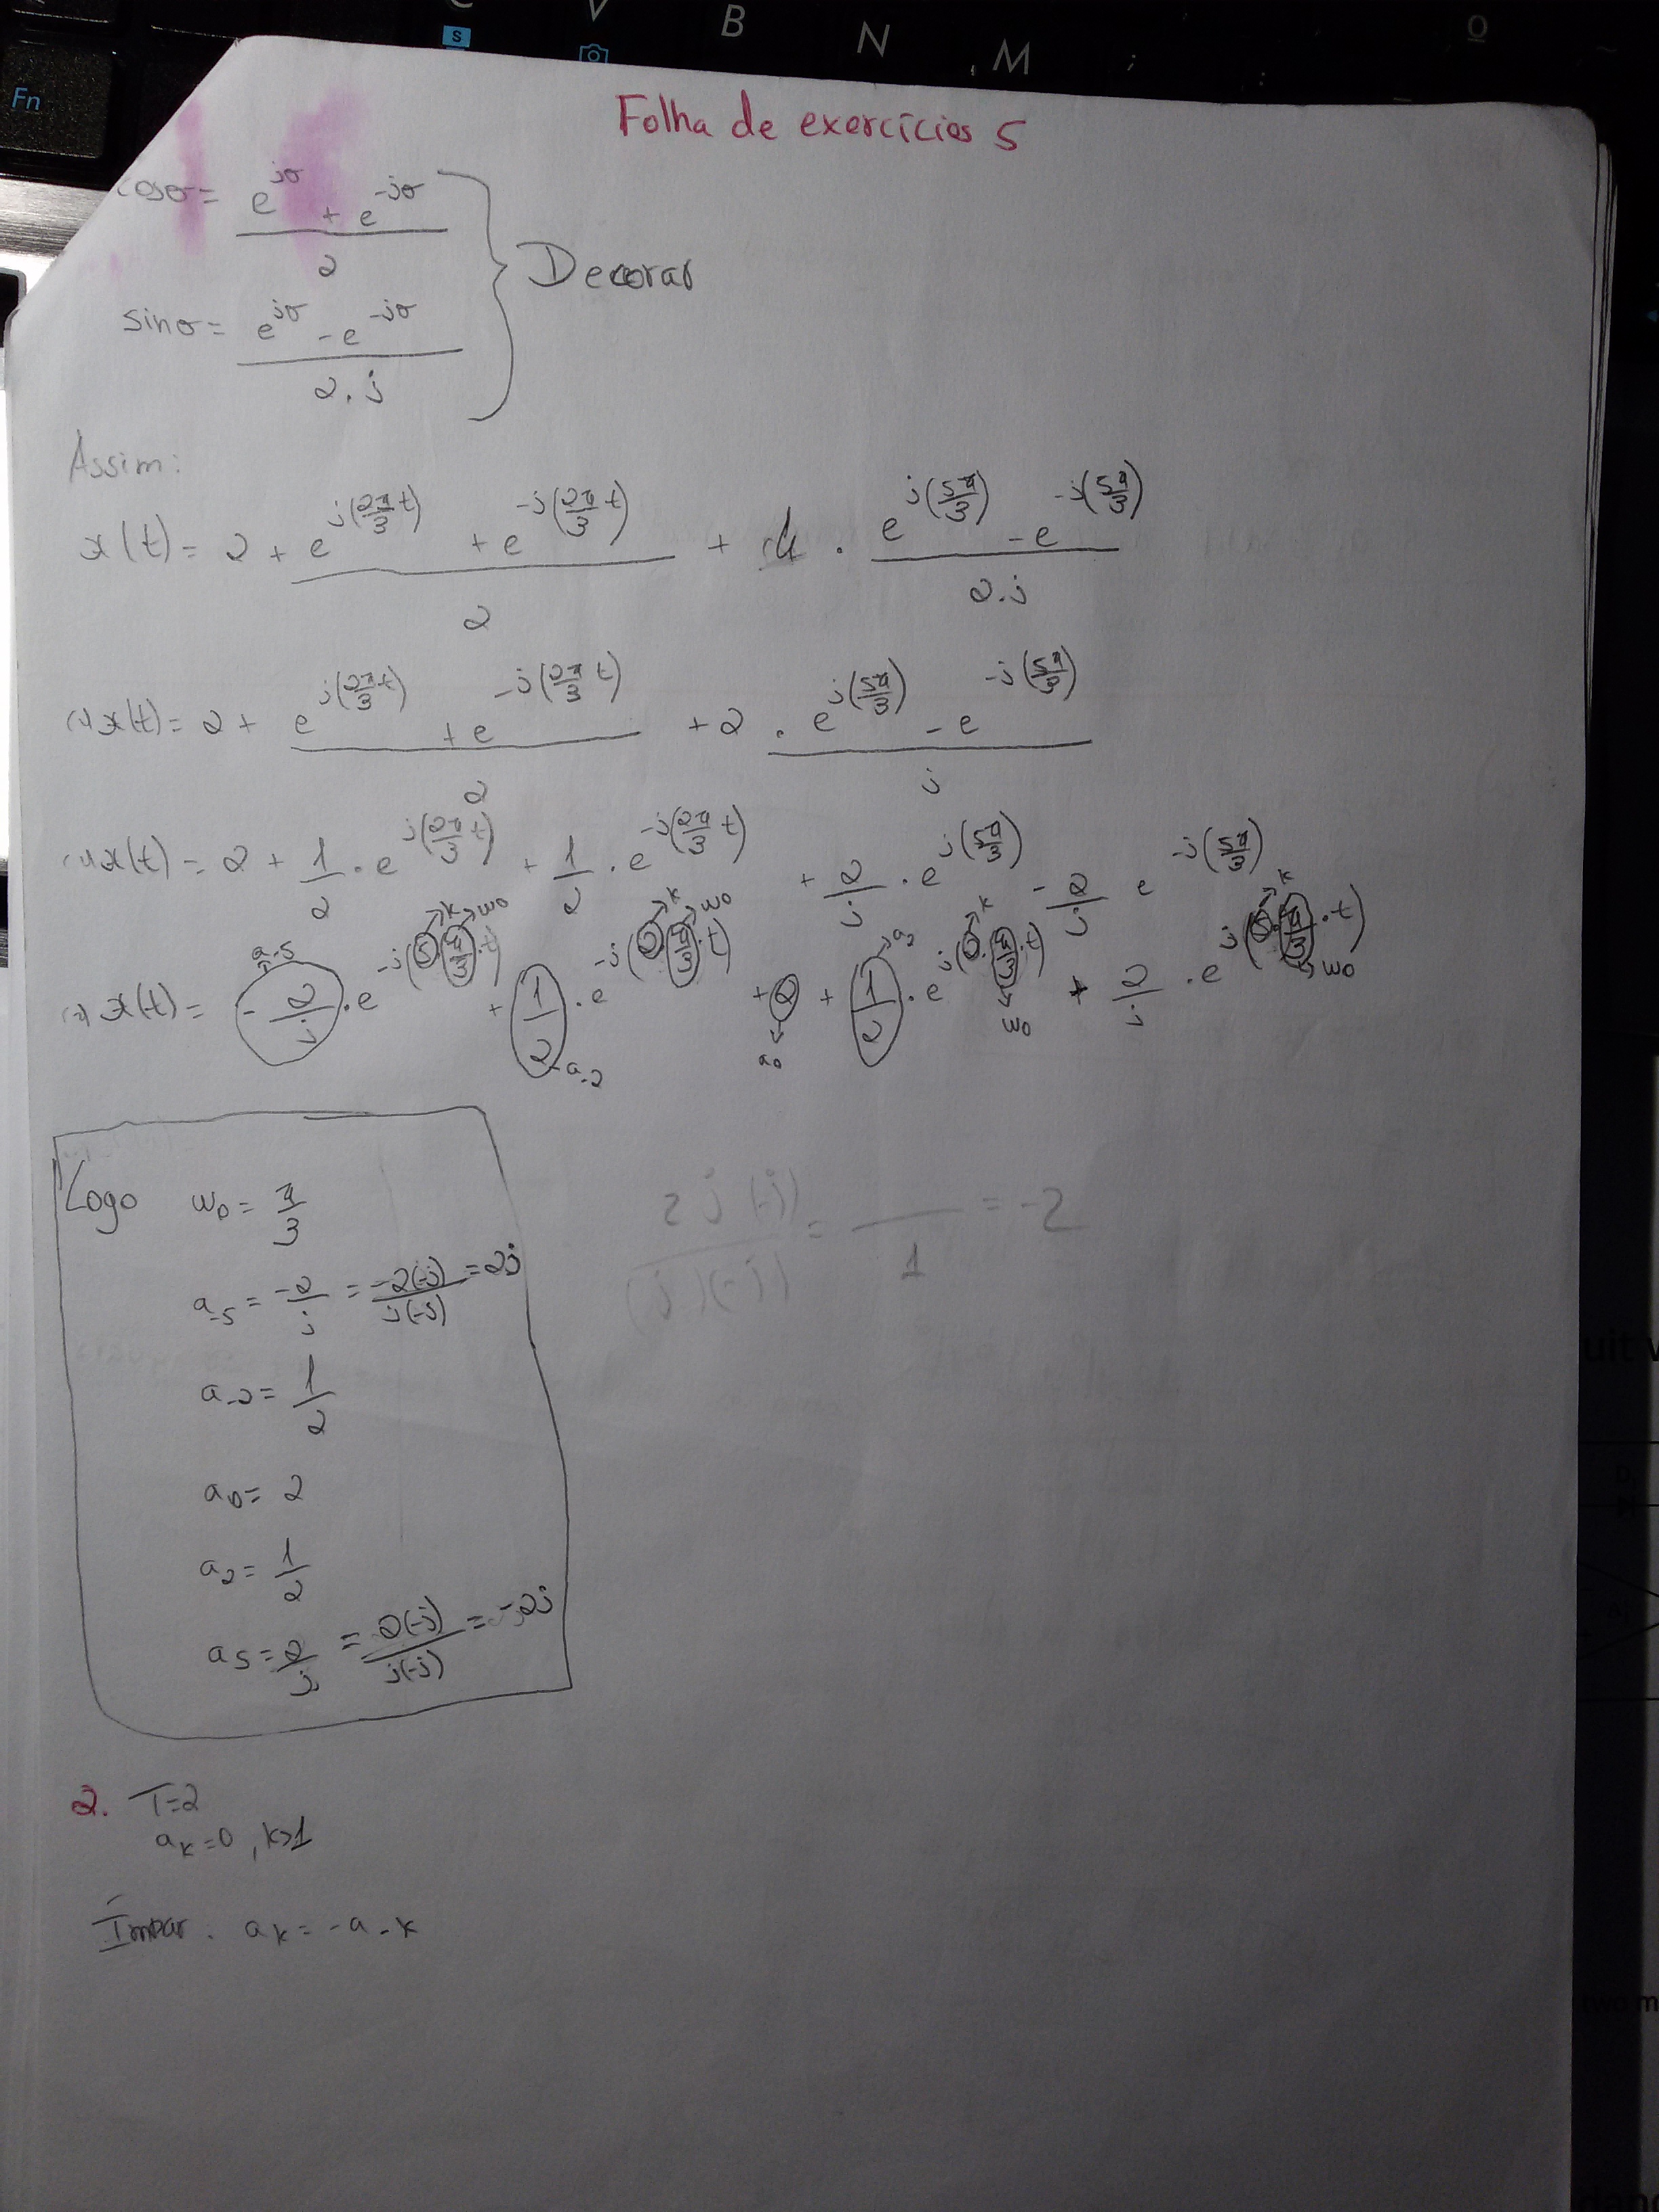 B N M
Fn
S
Folha de exercícios 5
cosσ = (e^{jσ} + e^{-jσ}) / 2
Decorar
sinσ = (e^{jσ} - e^{-jσ}) / 2.j
Assim:
x(t) = 2 + (e^{j(2π/3 t)} + e^{-j(2π/3 t)}) / 2 + 4 . (e^{j(5π/3)} - e^{-j(5π/3)}) / 2.j
x(t) = 2 + (e^{j(2π/3 t)} + e^{-j(2π/3 t)}) / 2 + 2 . (e^{j(5π/3)} - e^{-j(5π/3)}) / j
x(t) = 2 + 1/2 . e^{j(2π/3 t)} + 1/2 . e^{-j(2π/3 t)} + 2/j . e^{j(5π/3)} - 2/j e^{-j(5π/3)}
a-5 k w0 k w0 a2 k k
x(t) = - 2/j . e^{-j(5 π/3 . t)} + 1/2 . e^{-j(2 . π/3 . t)} + 2 + 1/2 . e^{j(2 . π/3 . t)} + 2/j . e^{j(5 . π/3 . t)}
a-2 a0 w0 w0
Logo w0 = π/3
a-5 = -2/j = -2(-j) / j(-j) = 2j
a-2 = 1/2
a0 = 2
a2 = 1/2
a5 = 2/j = 2(-j) / j(-j) = -2j
2. T=2
ak = 0, k>1
Ímpar: ak = -a-k
uit
two m